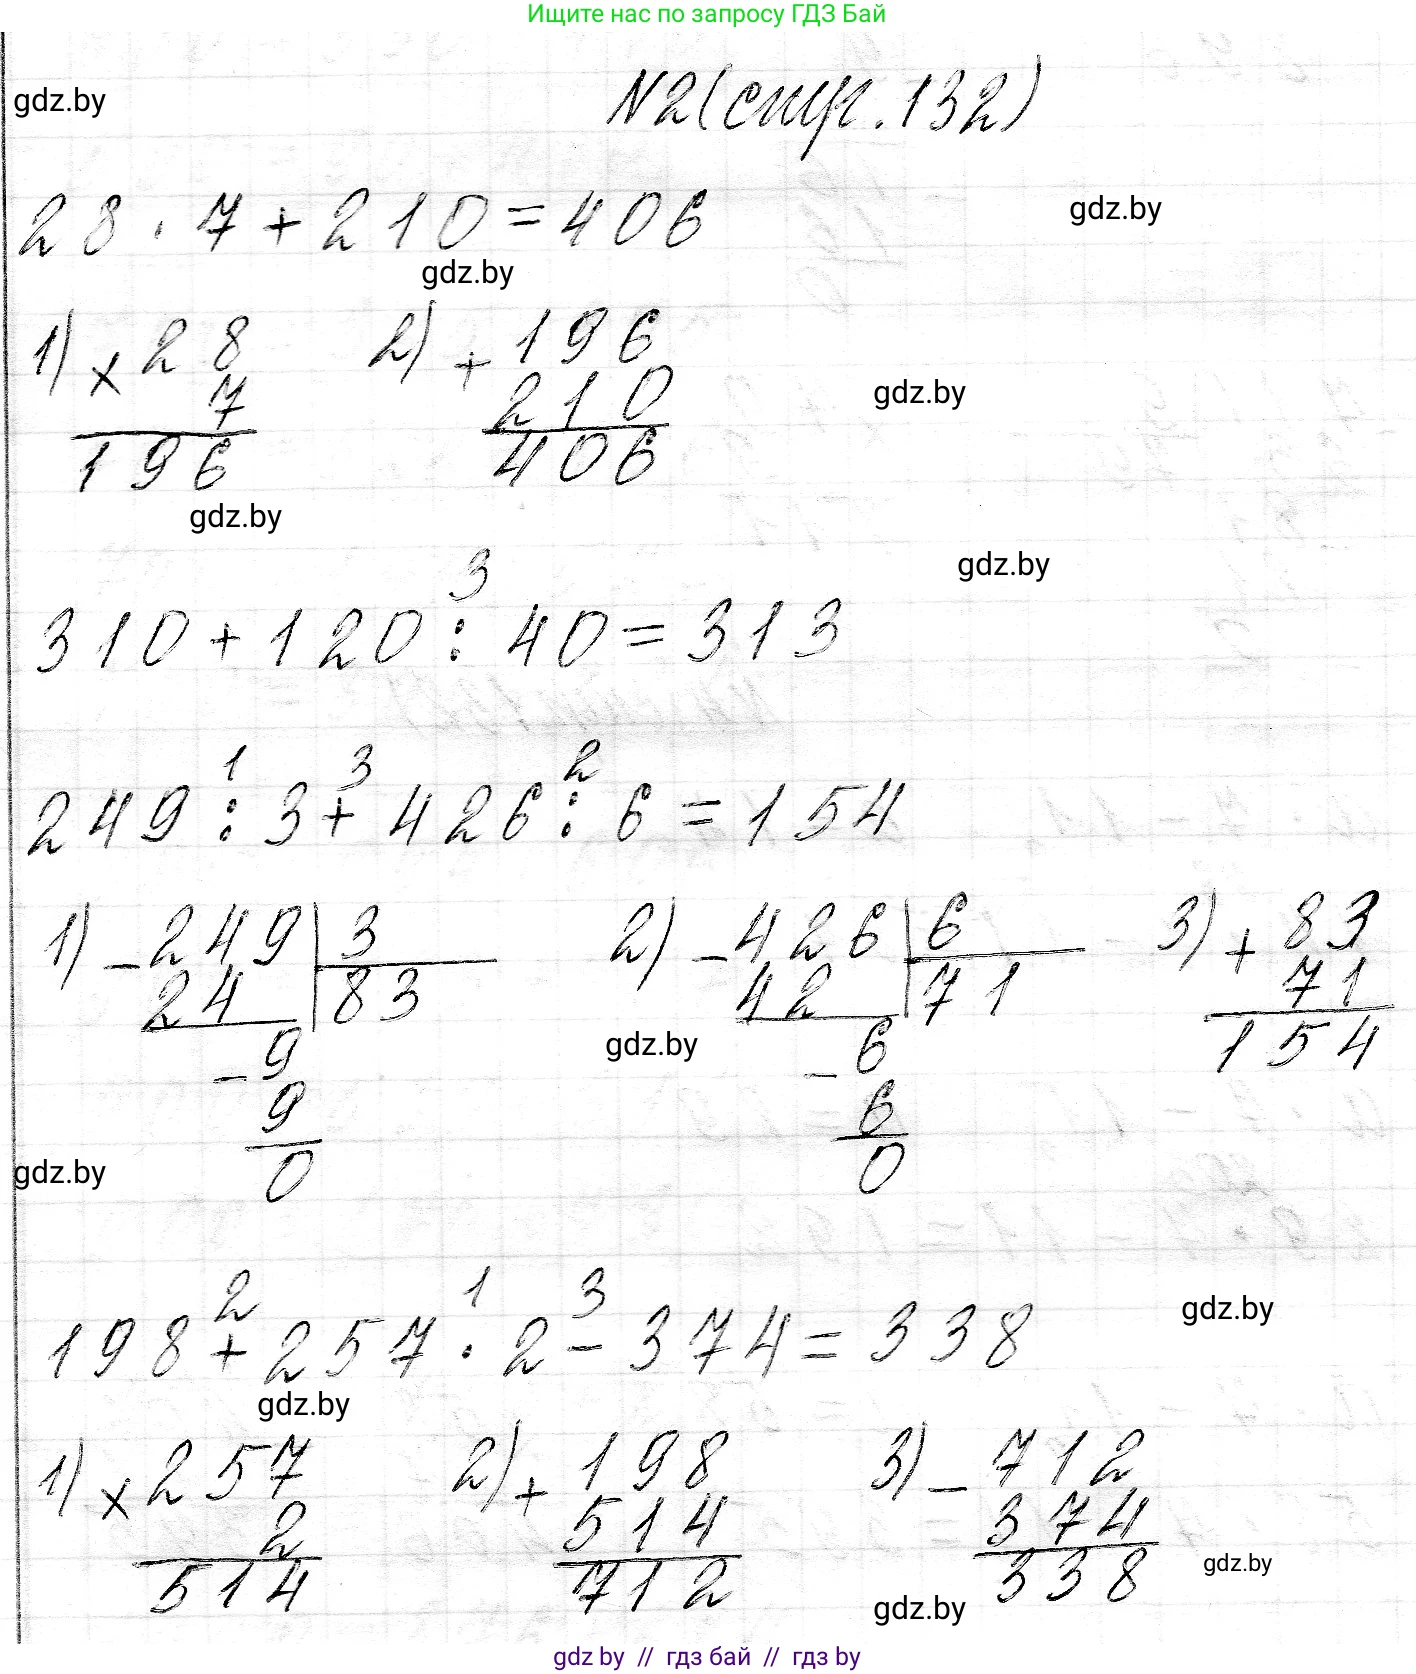 Ищите нас по запросу ГДЗ Бай
N2(стр.132)
gdz.by
28 · 7 + 210 = 406
gdz.by
gdz.by
1) × 28 2) + 196
7 210
gdz.by
196 406
gdz.by
3
gdz.by
310 + 120 : 40 = 313
1 3 2
249 : 3 + 426 : 6 = 154
1) - 249 | 3 2) - 426 | 6 3) + 83
24 83 42 71 71
- 9 gdz.by - 6 154
9 6
0 0
gdz.by
2 1 3
gdz.by
198 + 257 · 2 - 374 = 338
gdz.by
1) × 257 2) + 198 3) - 712
2 514 374
514 712 338
gdz.by
gdz.by
gdz.by // гдз бай // гдз by